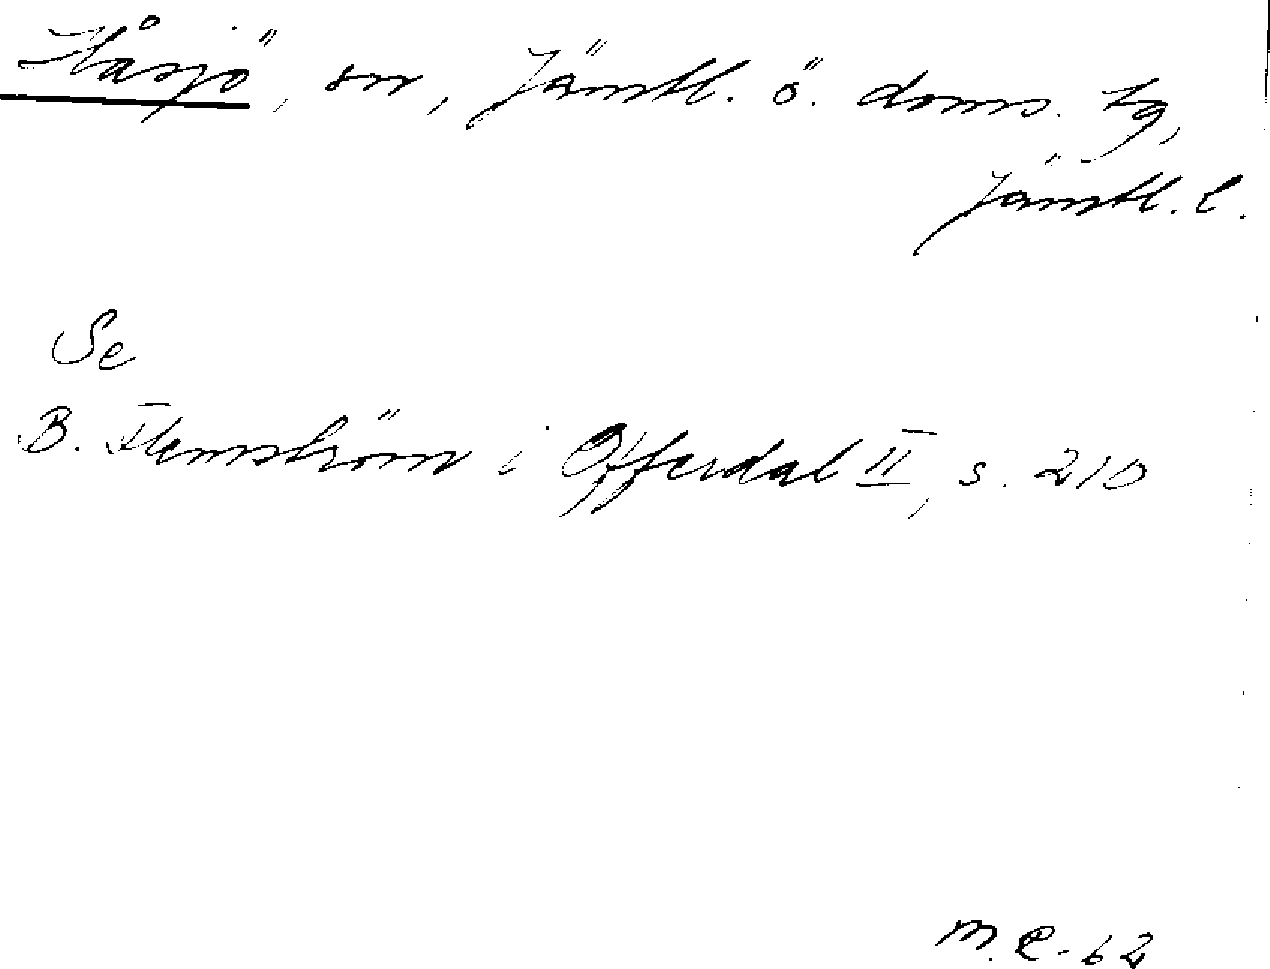 Håsjö, sn, Jämtl. ö. doms. tg,
Jämtl. l.
Se
B. Flemström i Offerdal II, s. 210
M. E. -62